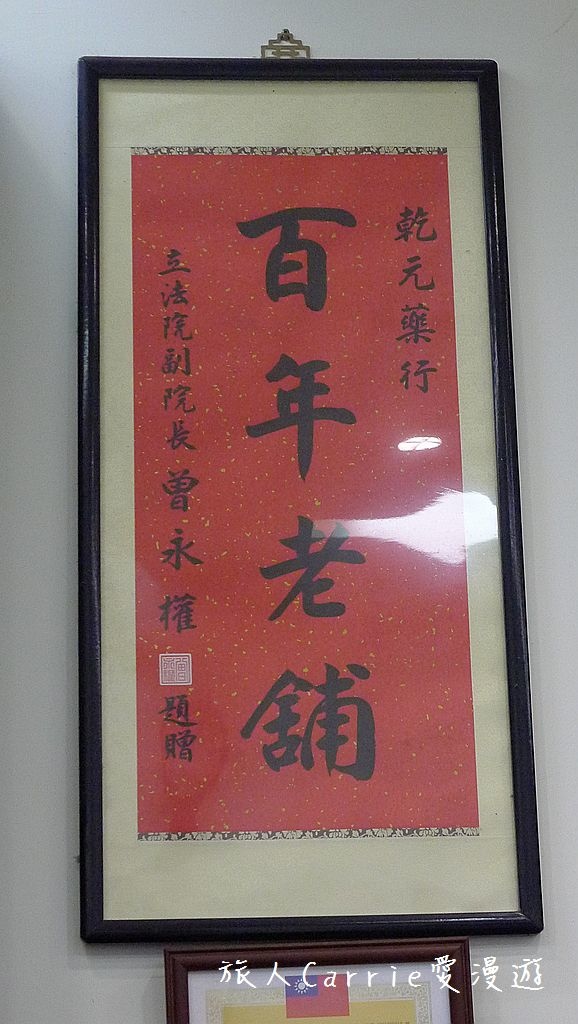 乾元藥行
百年老舖
立法院副院長曾永權題贈
旅人Carrie愛漫遊